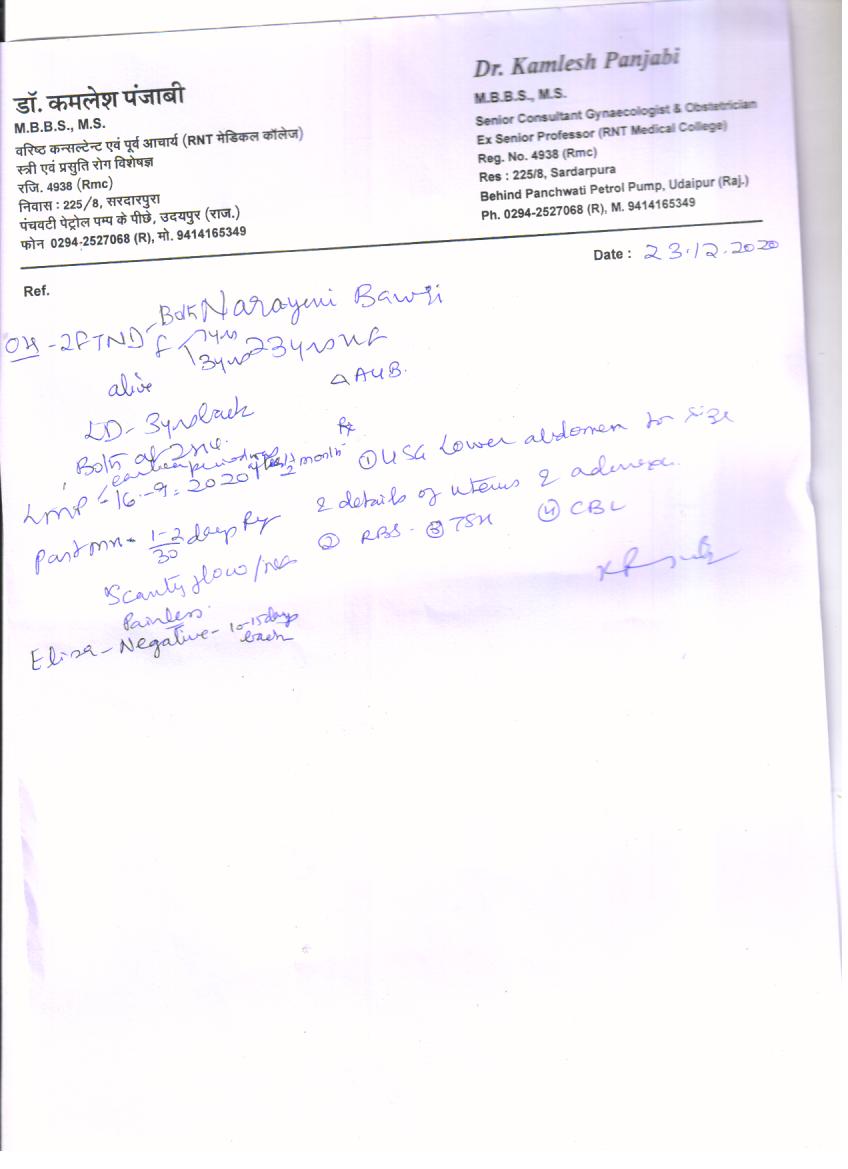 डॉ. कमलेश पंजाबी
M.B.B.S., M.S.
वरिष्ठ कन्सल्टेन्ट एवं पूर्व आचार्य (RNT मेडिकल कॉलेज)
स्त्री एवं प्रसुति रोग विशेषज्ञ
रजि. 4938 (Rmc)
निवास : 225/8, सरदारपुरा
पंचवटी पेट्रोल पम्प के पीछे, उदयपुर (राज.)
फोन 0294-2527068 (R), मो. 9414165349
Dr. Kamlesh Panjabi
M.B.B.S., M.S.
Senior Consultant Gynaecologist & Obstetrician
Ex Senior Professor (RNT Medical College)
Reg. No. 4938 (Rmc)
Res : 225/8, Sardarpura
Behind Panchwati Petrol Pump, Udaipur (Raj.)
Ph. 0294-2527068 (R), M. 9414165349
Date : 23.12.2020
Ref.
Narayeni Bawri
23yrs
△ AUB.
OH - 2FTND Both
7yrs
3yrs
alive
LD - 3yrs back
Both at
LMP - 16.-9.2020
Past MH - 1-2/30 days
Scanty flow
Painless.
Elisa - Negative - 10-15 days back
Rx
① USG Lower abdomen for size & details of uterus & adnexa.
② RBS - ③ TSH ④ CBC